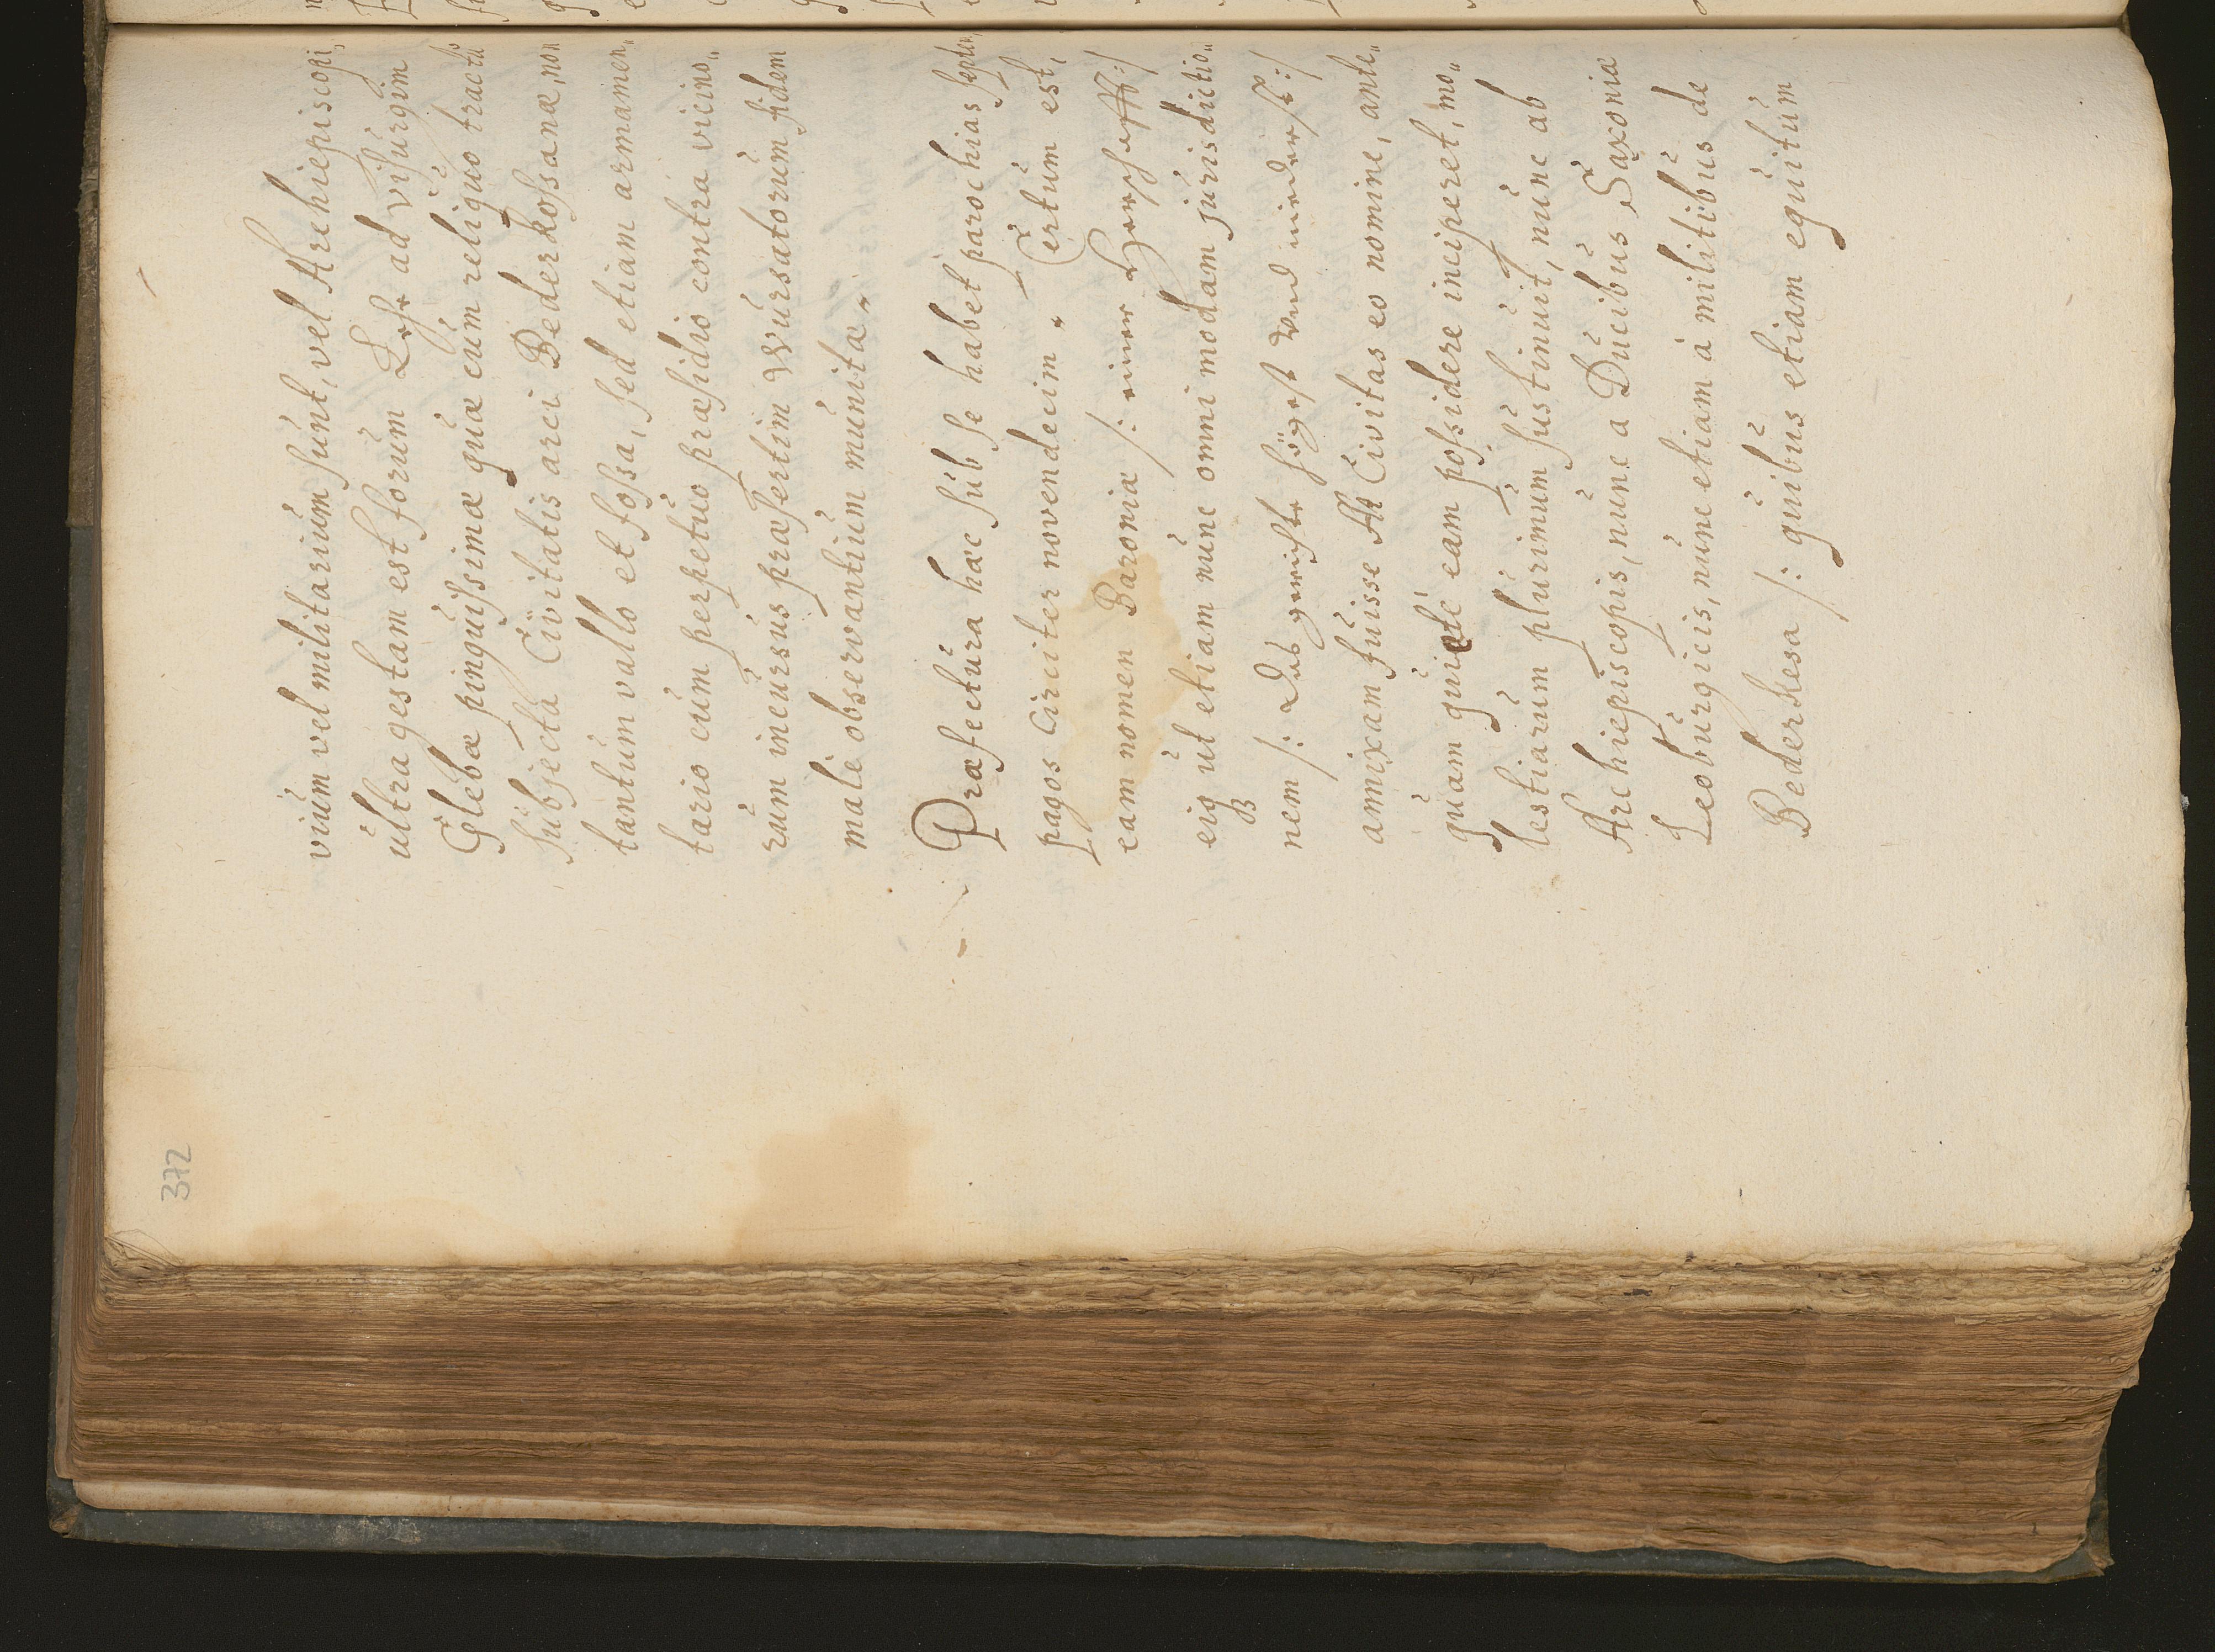 372
vium vel militarium sunt, vel Archiepiscopi,
ultra gestam est forum Lehe ad visurgim
Glebæ pinguissimæ quæ cum reliquo tractu
subjecta Civitatis arci Bederkossanæ, non
tantum vallo et fossa, sed etiam armamen„
tario cum perpetuo præsidio contra vicino„
rum incursus præsertim Wursatorum fidem
male observantium munita.
Præfectura hæc sub se habet parochias septem,
pagos circiter novendecim. Certum est,
eam nomen Baroniæ /: einer Herrschafft :/
eiq ut etiam nunc omnimodam jurisdictio„
nem /: das gerichte högest vnd niederst :/
annixam fuisse Civitas eo nomine, ante„
quam quiete eam possidere inciperet, mo„
lestiarum plurimum sustinuit, nunc ab
Archiepiscopis, nunc a Ducibus Saxoniæ
Leoburgicis, nunc etiam à militibus de
Bederkesa /: quibus etiam equitum